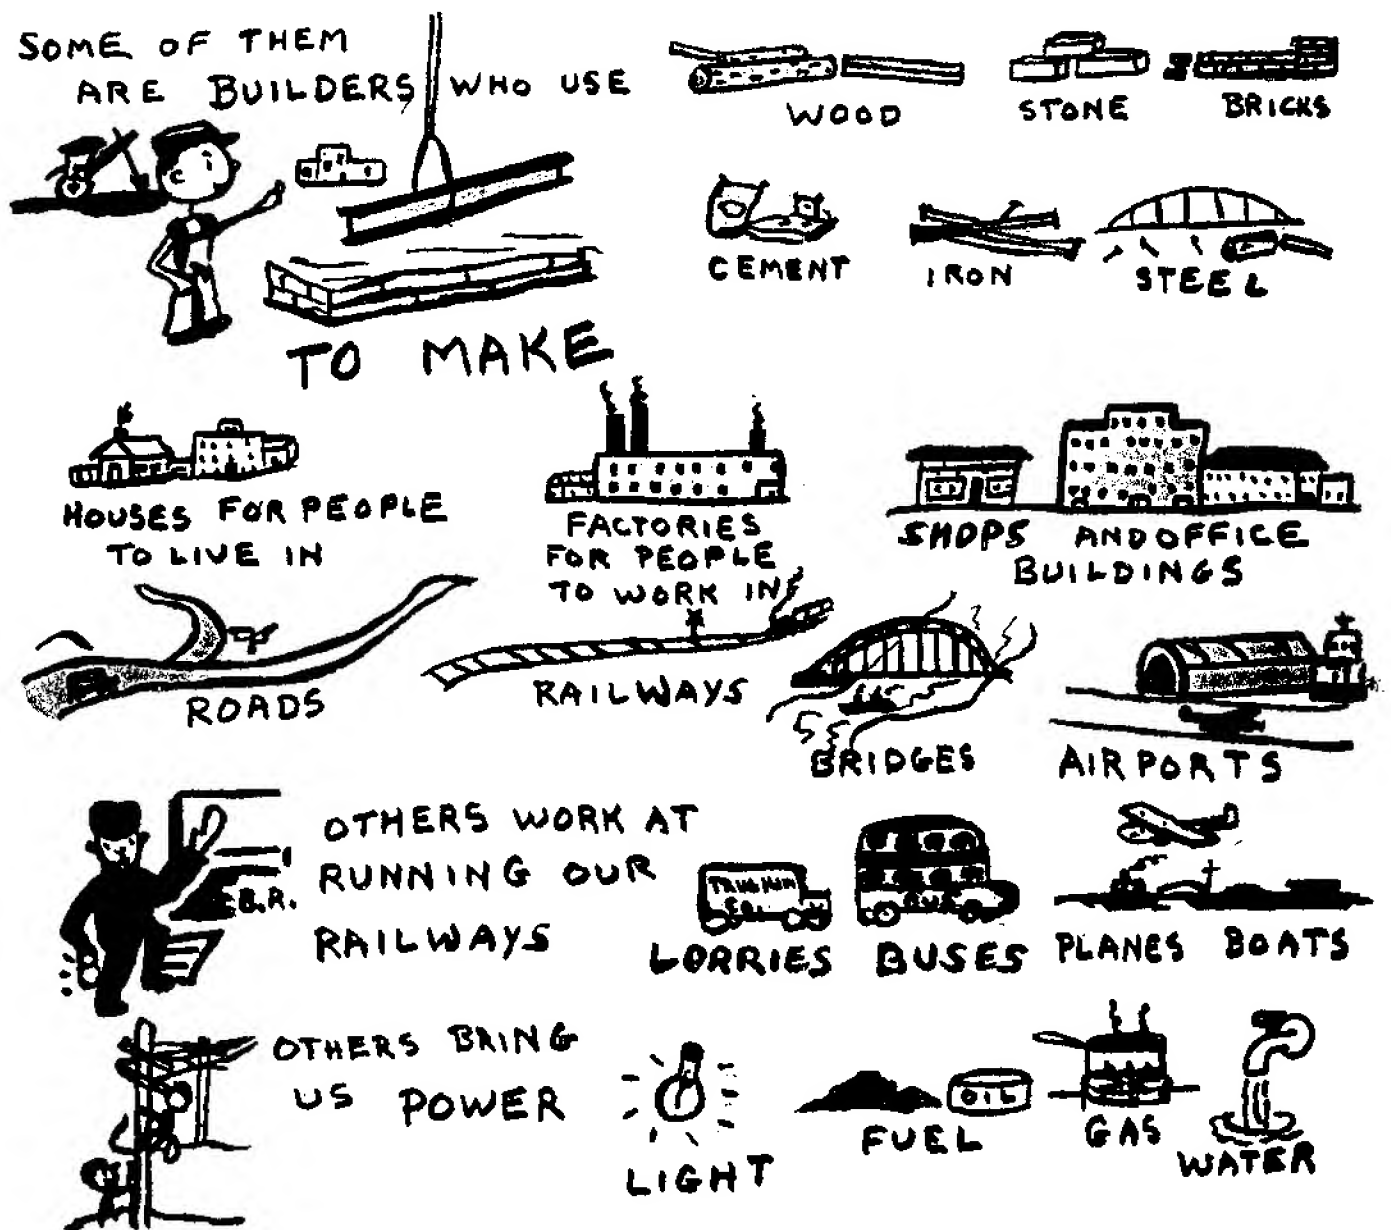 SOME OF THEM
ARE BUILDERS WHO USE
WOOD
STONE
BRICKS
CEMENT
IRON
STEEL
TO MAKE
HOUSES FOR PEOPLE
TO LIVE IN
FACTORIES
FOR PEOPLE
TO WORK IN
SHOPS AND OFFICE
BUILDINGS
ROADS
RAILWAYS
BRIDGES
AIRPORTS
B.R.
OTHERS WORK AT
RUNNING OUR
RAILWAYS
LORRIES
BUS
BUSES
PLANES
BOATS
OTHERS BRING
US POWER
LIGHT
OIL
FUEL
GAS
WATER